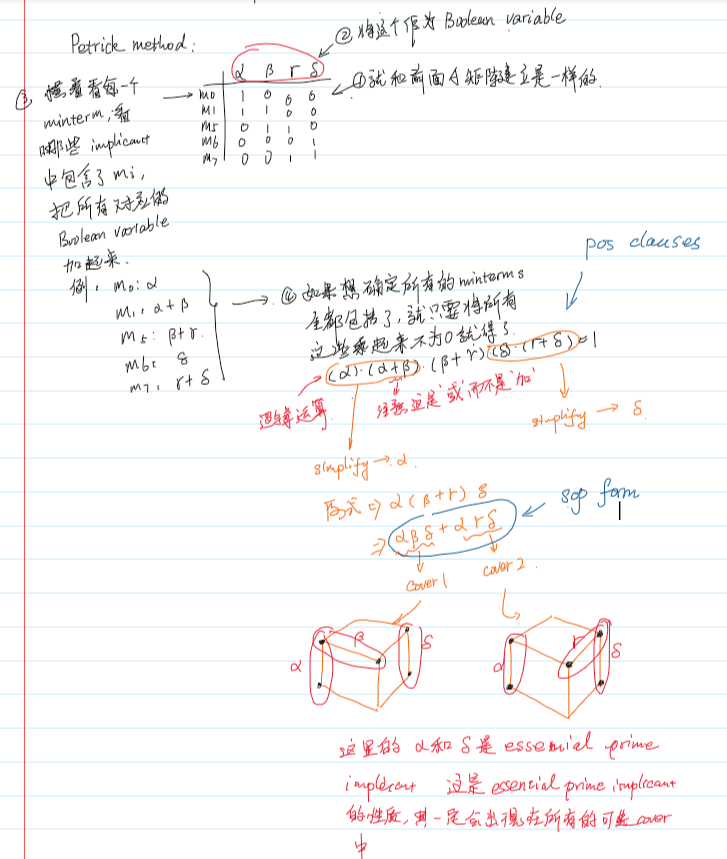 Petrick method:
② 将这个作为 Boolean variable
α β γ δ
① 就和前面的矩阵建立是一样的
m0 1 0 0 0
m1 1 1 0 0
m5 0 1 1 0
m6 0 0 0 1
m7 0 0 1 1
③ 想看看每一个
minterm, 看
哪些 implicant
中包含了 mi,
把所有对应的
Boolean variable
加起来.
例: m0: α
m1: α+β
m5: β+γ.
m6: δ
m7: γ+δ
④ 如果想确定所有的minterms
全都包括了, 就只要将所有
这些乘起来不为0就得了.
pos clauses
(α)·(α+β)·(β+γ)(δ)·(γ+δ)=1
逻辑运算
注意这是"或"而不是"加"
simplify → α
simplify → δ.
原式 => α(β+γ) δ
=> αβδ + αγδ
sop form
cover 1
cover 2.
α β δ
α γ δ
这里的 α和 δ 是 essential prime
implicant 这是 essential prime implicant
的性质, 其一定会出现在所有的可能 cover
中